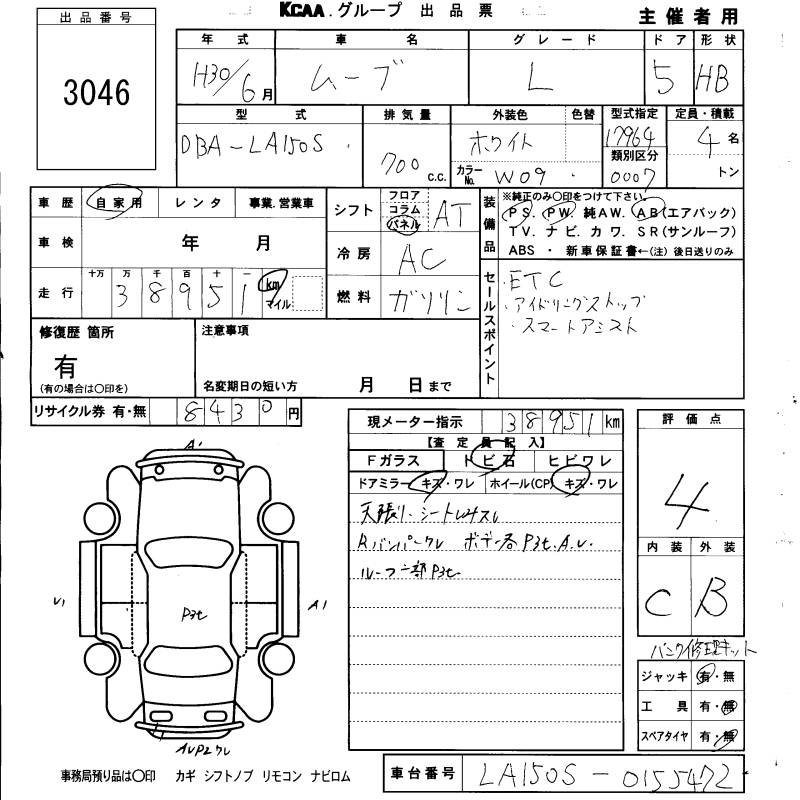 KCAA.グループ 出品票
主催者用
出品番号
3046
年式 車名 グレード ドア 形状
H30/6月 ムーブ L 5 HB
型式 排気量 外装色 色替 型式指定 定員・積載
DBA-LA150S 700c.c. ホワイト 17964 4名
カラーNo. W09 類別区分 0007 トン
車歴 自家用 レンタ 事業.営業車
シフト フロア コラム パネル AT
装備品
※純正のみ○印をつけて下さい。
PS. PW. 純AW. AB(エアバック)
TV. ナビ. カワ. SR(サンルーフ)
ABS ・ 新車保証書←(注) 後日送りのみ
車検 年 月
冷房 AC
走行 十万 万 千 百 十 一
38951 km マイル
燃料 ガソリン
セールスポイント
・ETC
・アイドリングストップ
・スマートアシスト
修復歴 箇所
有
(有の場合は○印を)
注意事項
名変期日の短い方 月 日まで
リサイクル券 有・無 8430円
現メーター指示 38951km
【査定員記入】
Fガラス トビ石 ヒビワレ
ドアミラー キズ・ワレ ホイール(CP) キズ・ワレ
天張り・シート
Rバンパークレ ボデー P3t.A.U.
ルーフ 部 P3t
評価点
4
内装 外装
C B
パンク修理キット
ジャッキ 有・無
工具 有・無
スペアタイヤ 有・無
A1
U1
P3t
A1
AUP2クレ
事務局預り品は○印 カギ シフトノブ リモコン ナビロム
車台番号 LA150S-0155472